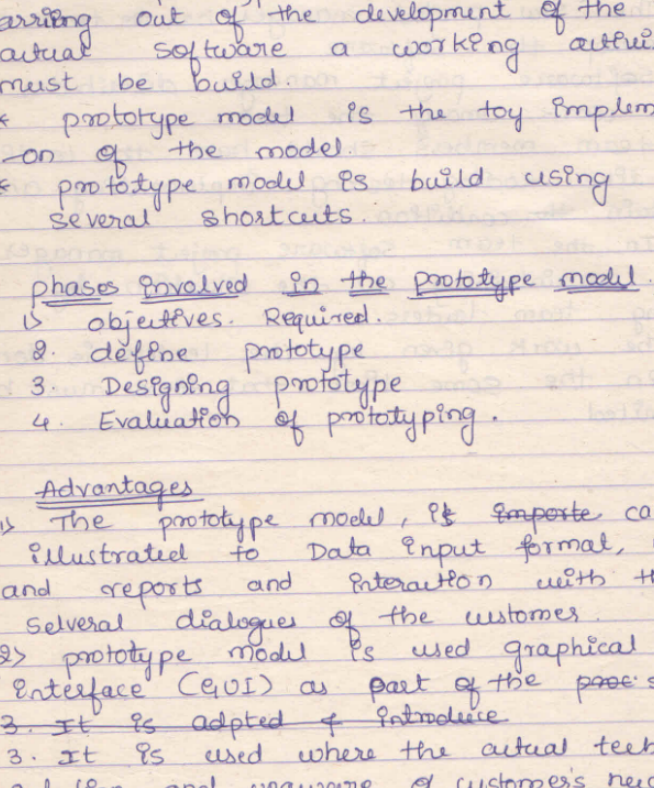 arriing out of the development of the
actual software a working
must be build.
* prototype model is the toy implem
-on of the model.
* prototype model is build using
several shortcuts.
phases involved in the prototype model.
1> objectives. Required.
2. define prototype
3 Designing prototype
4. Evaluation of prototyping.
Advantages
1> The prototype model, is importe ca
illustrated to Data input format,
and reports and interaction with th
selveral dialogues of the customer.
2> prototype model is used graphical
interface (GUI) as part of the
3. It is adpted & introduce
3. It is used where the actual tech
and unaware of customer's need